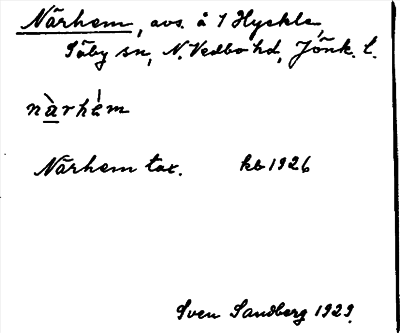 Närhem, avs. å 1 Hyckle
Säby sn, N. Vedbo hd, Jönk. l.
nàrhém
Närhem tax. kb 1926
Sven Sandberg 1929.